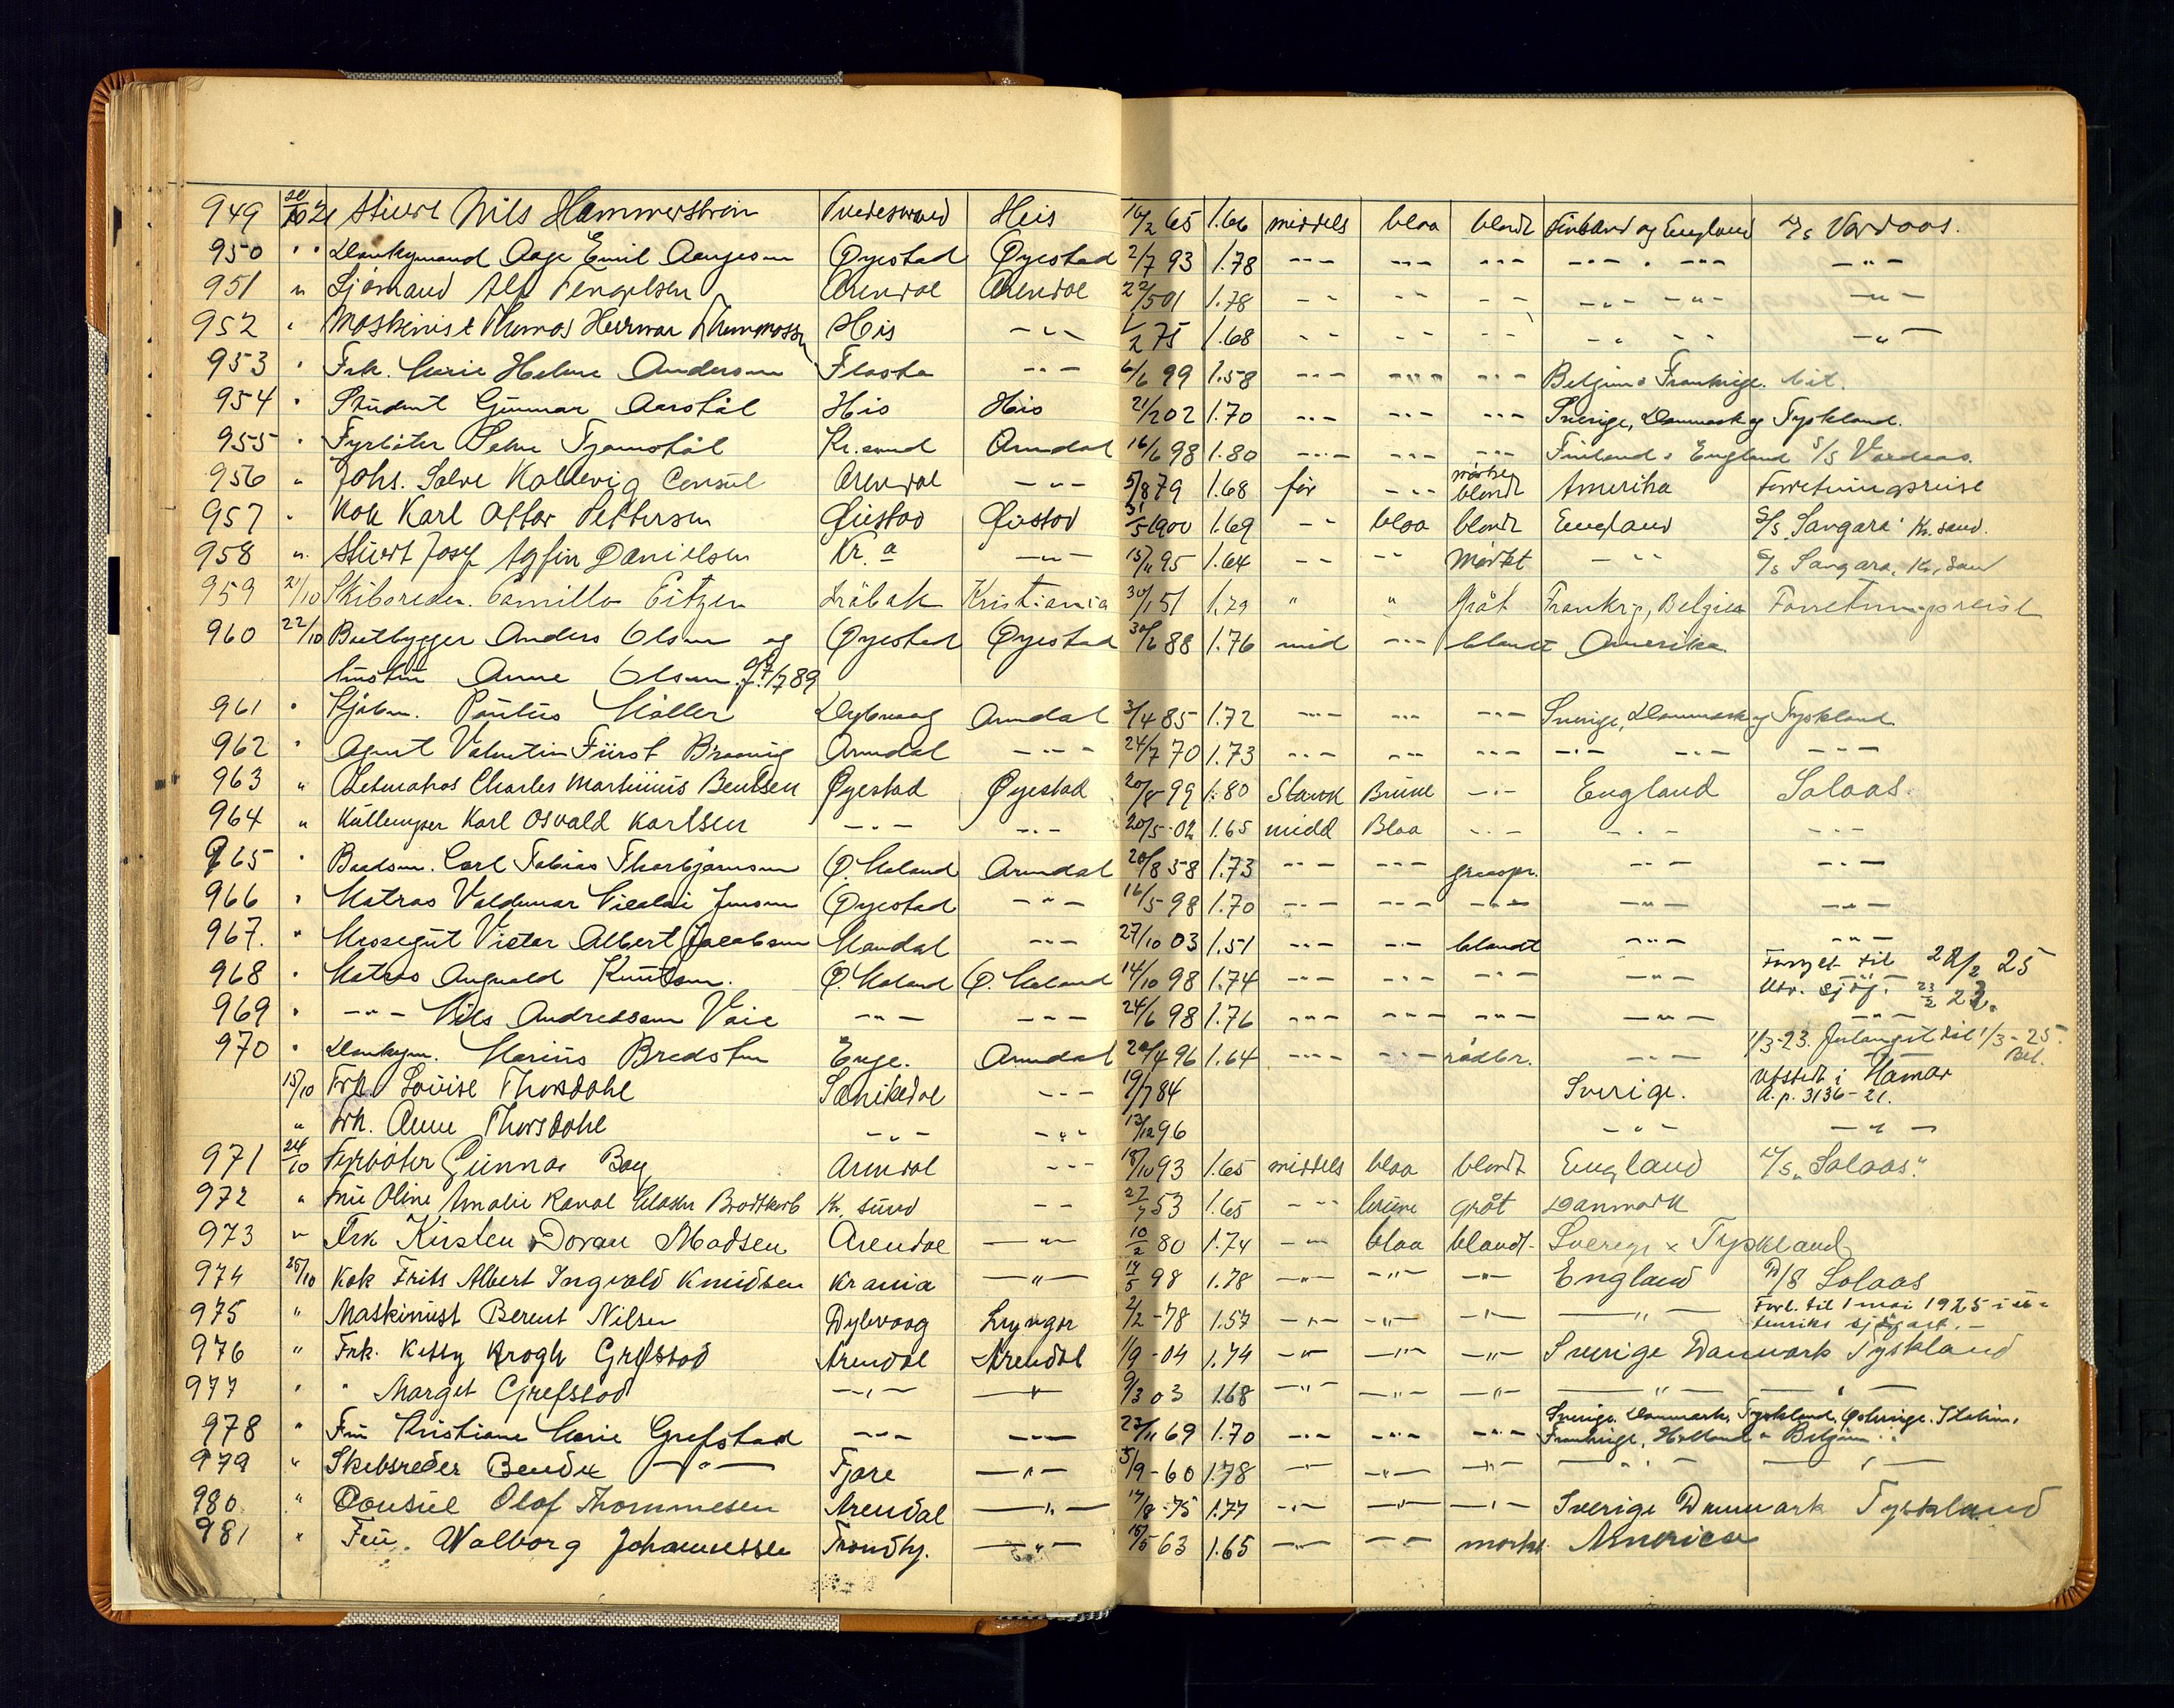 949 20/10 21 Stuert Nils Hammerstrøm Tvedestrand His 14/2 65 1.66 middels blaa blondt Finland og England D/s Vardaas.
950 " " Donkymand Aage Emil Aanjesen Øyestad Øyestad 2/7 93 1.78 -"- -"- -"- -"- " -"- -"-
951 " Sjømand Alf Tengelsen Arendal Arendal 22/5 01 1.78 -"- -"- -"- -"- -"- -"-
952 " Maskinist Thomas Herman Thommassen His -"- 1/2 75 1.68 -"- -"- -"- -"- -"- -"-
953 " Frk. Marie Helene Andersen Flosta -"- 6/6 99 1.58 -"- -"- -"- Belgien & Frankrige.
954 " Student Gunnar Aarstål His His 21/2 02 1.70 -"- -"- Sverige, Danmark og Tyskland.
955 " Fyrbøter Kr.sund Arendal 16/6 98 1.80 -"- -"- -"- Finland & England S/S Vardaas.
956 " Johs. Salve Kallevig Consul Arendal -"- 5/8 79 1.68 før -"- mørke blondt Amerika Forretningsreise
957 " Kok Karl Ottar Pettersen Øiestad Øiestad 31/5 1900 1.69 -"- blaa blondt England S/s "Sangara" Kr.sand.
958 " Stuert Josef Agfin Danielsen Kr.a -"- 15/11 95 1.64 -"- -"- Mørkt -"- S/s Sangara, Kr.sand
959 21/10 Skibsreder. Camillo Eitzen Drøbak Kristiania 30/1 51 1.79 " " Gråt Frankr., Belgien Forretningsreise
960 22/10 Baatbygger Anders Olsen og Øyestad Øyestad 30/6 88 1.76 mid -"- blandt Amerika
hustru Anne Olsen f. 7/7 89
961 " Kjøbm. Pontus Møller Dybvaag Arendal 3/4 85 1.72 -"- -"- -"- Sverige, Danmark og Tyskland
962 " Agent Valentin Fürst Arendal -"- 24/7 70 1.73 -"- -"- -"- -"- -"- -"-
963 " Letmatros Charles Martinius Bentsen Øyestad Øyestad 20/8 99 1.80 Slank Brune -"- England Solaas.
964 " Kullemper Karl Osvald Karlsen -"- -"- 20/5-02 1.65 midd Blaa -"- -"- -"-
965 " Baadsm. Carl Tobias Thorbjørnsen Ø. Moland Arendal 20/8 58 1.73 -"- -"- graaspr. -"- -"-
966 " Matros Valdemar Nicolai Jensen Øyestad -"- 16/5-98 1.70 -"- -"- -"- -"- -"-
967. " Messegut Victor Albert Jacobsen Mandal -"- 27/10 03 1.51 -"- -"- blandt -"- -"-
968 " Matros Angvald Knutsen. Ø. Moland Ø. Moland 14/10 98 1.74 -"- -"- -"- -"- Fornyet til 28/2 25
Utv. sjøf. 23/2 23.
969 " -"- Nils Andreassen Vaie -"- -"- 24/6 98 1.76 -"- -"- -"- -"- -"-
970 " Donkym. Marius Bredsten Enge. Arendal 20/4 96 1.64 -"- -"- rødbr. -"- 1/3-23. Forlænget til 1/3-25.
15/10 Frk. Louise Thorsdahl Sannikedal -"- 19/7 84 Sverige. Utstedt i Hamar
a.p. 3136-21.
" Frk. Anne Thorsdahl -"- -"- 13/12 96 -"- -"-
971 24/10 Fyrbøter Gunnar Bay Arendal -"- 18/10 93 1.65 middels blaa blondt England D/s "Solaas".
972 " Frue Oline Amalie Kr.sund -"- 27/7 53 1.65 -"- brune gråt Danmark
973 " Frk Kirsten Doran Madsen Arendal -"- 10/2 80 1.74 -"- blaa blandt Sverige x Tyskland
974 25/10 Kok Frits Albert Ingvald Knudsen Krania -"- 14/5 98 1.78 -"- -"- -"- England D/S Solaas
975 " Maskinist Berent Nilsen Dybvaag Lyngør 2/2-78 1.57 -"- -"- -"- -"- Forl. til 1 mai 1925 i
sjøfart.
976 " Frk. Ketty Krogh Grefstad Arendal Arendal 1/9-04 1.74 -"- -"- -"- Sverige Danmark Tyskland
977 " " Marget Grefstad -"- -"- 9/3 03 1.68 -"- -"- -"- -"- -"-
978 " Fru Kristiane Marie Grefstad -"- -"- 23/11 69 1.70 -"- -"- -"- Sverige. Danmark, Tyskland, Østerrige. Italien,
Frankrige, Holland & Belgien
979 " Skibsreder Bendix -"- Fjære -"- 5/9-60 1.78 -"- -"- -"- -"- -"-
980 " Consul Olaf Thommesen Arendal -"- 14/8-75 1.77 -"- -"- -"- Sverige Danmark Tyskland
981 " Fru. Walborg Johannessen Trondhj. -"- 15/5 63 1.65 -"- -"- mørke America